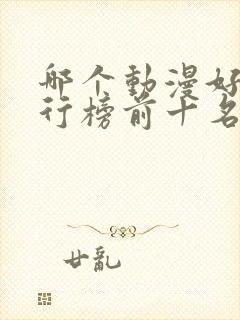 哪个動漫好
行榜前十名
廿亂